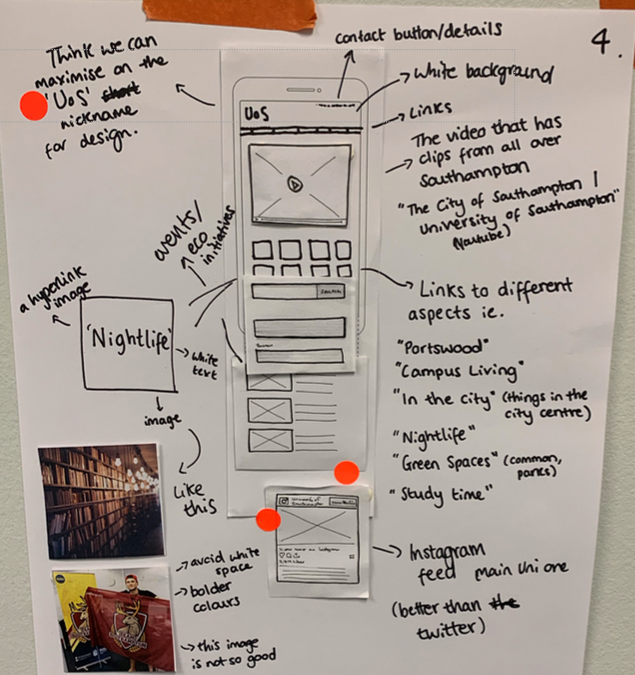 4.
contact button/details
Think we can
maximise on the
'UoS' short
nickname
for design.
White background
Links
The video that has
clips from all over
Southampton
"The City of Southampton |
University of Southampton"
Youtube)
UoS
events/
eco
initiatives
a hyperlink
image
'Nightlife'
white
text
image
Like
this
Links to different
aspects ie.
"Portswood"
"Campus Living"
"In the city" (things in the
city centre)
"Nightlife"
"Green Spaces" (common,
parks)
"Study time"
avoid white
space
bolder
colours
this image
is not so good
University of
Southampton
Instagram
feed main Uni one
(better than the
twitter)